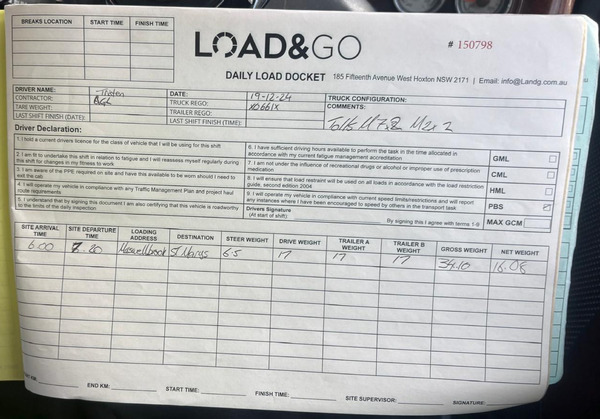 BREAKS LOCATION START TIME FINISH TIME
LOAD&GO
# 150798
DAILY LOAD DOCKET 185 Fifteenth Avenue West Hoxton NSW 2171 | Email: info@Landg.com.au
DRIVER NAME:
CONTRACTOR: AGL
TARE WEIGHT:
LAST SHIFT FINISH (DATE):
DATE: 19-12-24
TRUCK REGO: XO661X
TRAILER REGO:
LAST SHIFT FINISH (TIME):
TRUCK CONFIGURATION:
COMMENTS:
Tolls M7x2 M2x2
Driver Declaration:
1. I hold a current drivers licence for the class of vehicle that I will be using for this shift
2. I am fit to undertake this shift in relation to fatigue and I will reassess myself regularly during this shift for changes in my fitness to work
3. I am aware of the PPE required on site and have this available to be worn should I need to exit the cab
4. I will operate my vehicle in compliance with any Traffic Management Plan and project haul route requirements
5. I understand that by signing this document I am also certifying that this vehicle is roadworthy to the limits of the daily inspection
6. I have sufficient driving hours available to perform the task in the time allocated in accordance with my current fatigue management accreditation
7. I am not under the influence of recreational drugs or alcohol or improper use of prescription medication
8. I will ensure that load restraint will be used on all loads in accordance with the load restriction guide, second edition 2004
9. I will operate my vehicle in compliance with current speed limits/restrictions and will report any instances where I have been encouraged to speed by others in the transport task
Drivers Signature
(At start of shift) By signing this I agree with terms 1-9
GML
CML
HML
PBS
MAX GCM
SITE ARRIVAL TIME SITE DEPARTURE TIME LOADING ADDRESS DESTINATION STEER WEIGHT DRIVE WEIGHT TRAILER A WEIGHT TRAILER B WEIGHT GROSS WEIGHT NET WEIGHT
6.00 7.20 St Marys 6.5 17 17 17 34.10 16.08
END KM: START TIME: FINISH TIME: SITE SUPERVISOR: SIGNATURE: